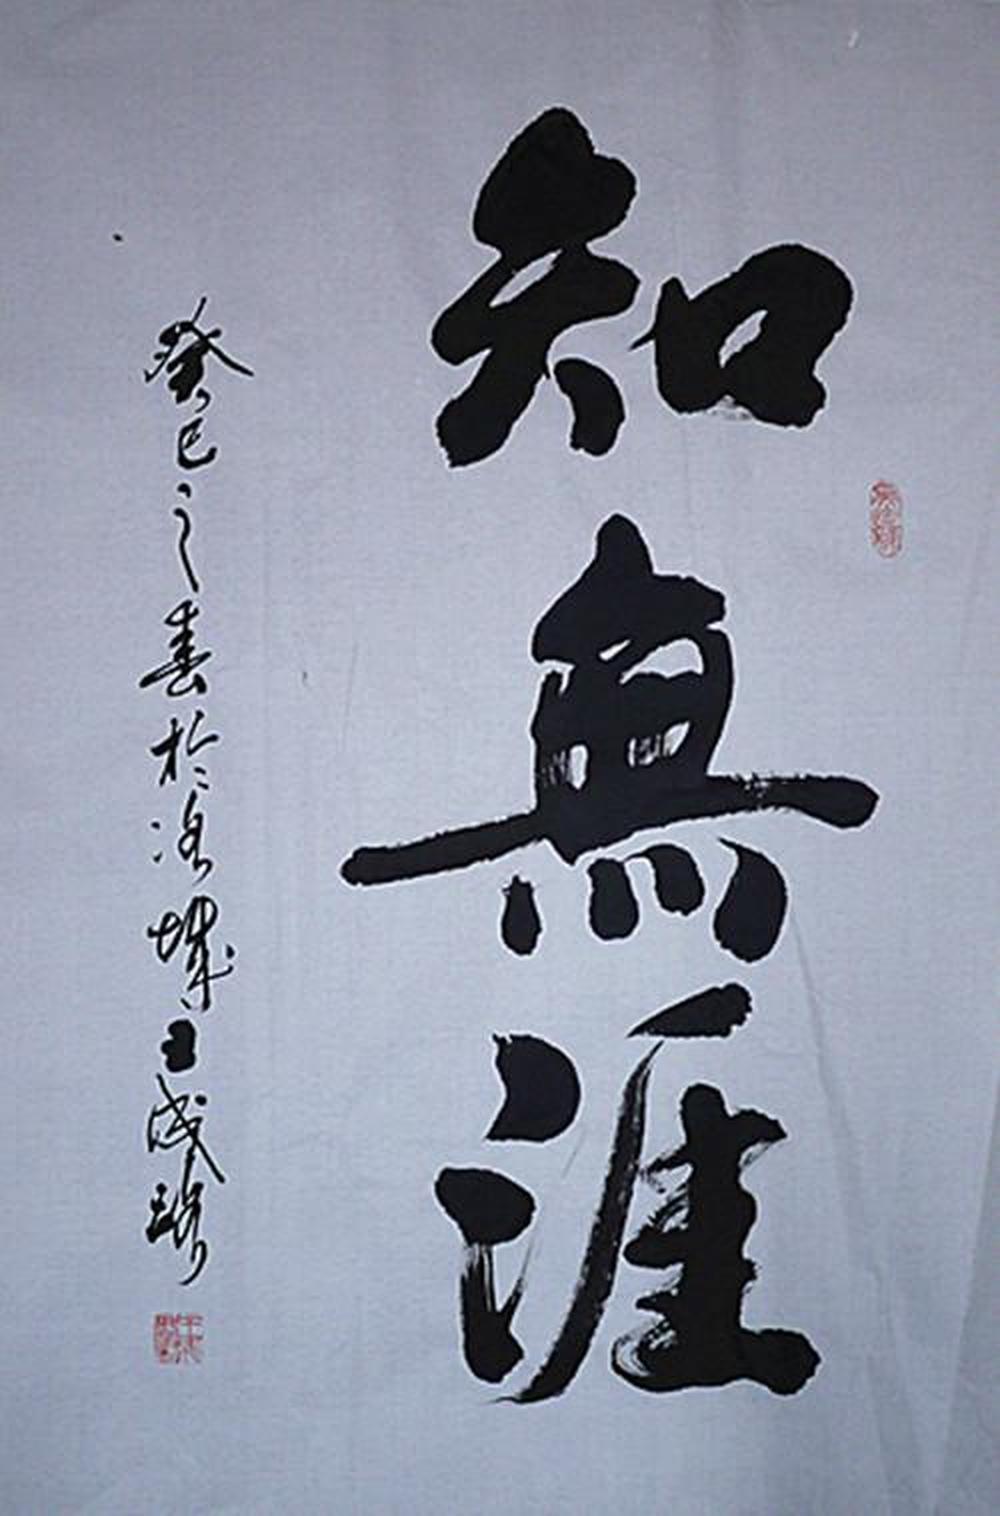 知無涯
癸巳之春於洛城王成